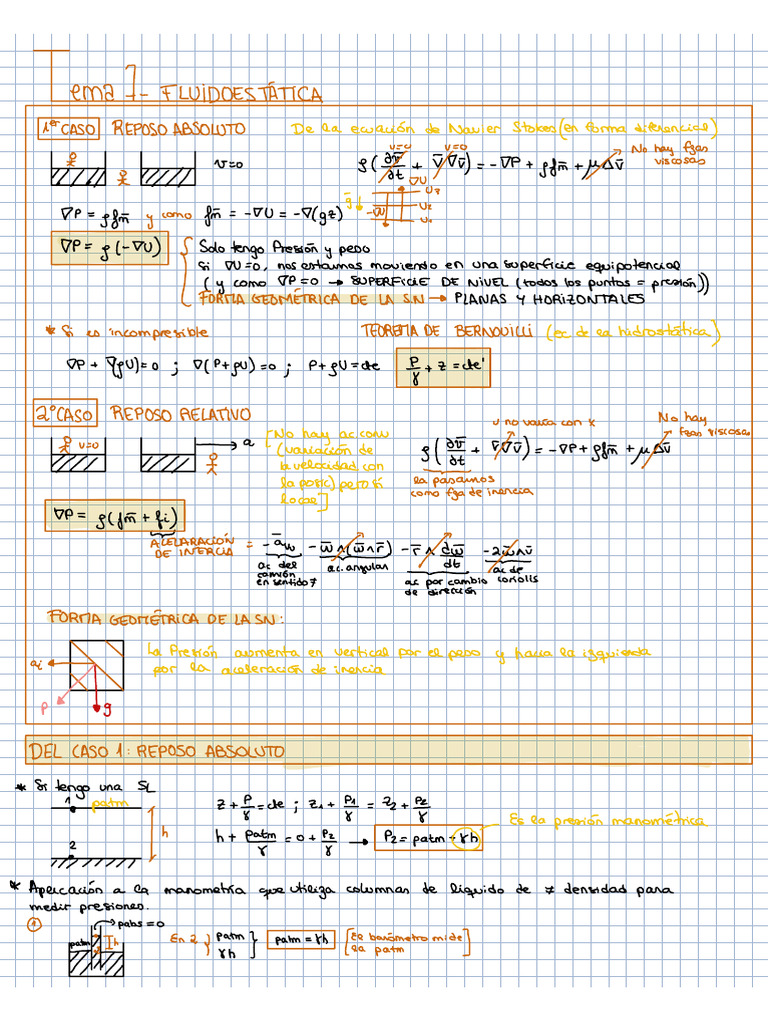 Tema 7- FLUIDOESTÁTICA
1er CASO REPOSO ABSOLUTO De la ecuación de Navier Stokes (en forma diferencial)
v=0 ρ(∂v̄/∂t + ∇̄∇̄v̄) = -∇P + ρfm̄ + μΔv̄ v=0 v=0 No hay fzas viscosas
∇P = ρfm̄ y como fm̄ = -∇U = -∇(gz) ḡ -∇U ∇U U3 U2 U1
∇P = ρ(-∇U) Solo tengo Presión y peso
Si ∇U=0, nos estamos moviendo en una superficie equipotencial
(y como ∇P=0 → SUPERFICIE DE NIVEL (todos los puntos = presión))
FORMA GEOMÉTRICA DE LA S.N → PLANAS Y HORIZONTALES
* Si es incompresible TEOREMA DE BERNOUILLI (ec de la hidrostática)
∇P + ∇(ρU)=0 ; ∇(P+ρU)=0 ; P+ρU=cte P/γ + z = cte'
2º CASO REPOSO RELATIVO
v=0 a
[No hay ac conv (variación de la velocidad con la posic) pero sí local]
ρ(∂v̄/∂t + ∇̄∇̄v̄) = -∇P + ρfm̄ + μΔv̄ v no varía con x No hay fzas viscosas
la pasamos como fza de inercia
∇P = ρ(fm̄ + fi)
ACELARACIÓN DE INERCIA = -ā₀ -ω̄∧(ω̄∧r̄) -r̄∧dω̄/dt -2ω̄∧v̄
ac del camión en sentido ≠ ac. angular ac por cambio de dirección ac de coriolis
FORMA GEOMÉTRICA DE LA SN:
ai p g
La Presión aumenta en vertical por el peso y hacia la izquierda
por la aceleración de inercia
DEL CASO 1: REPOSO ABSOLUTO
* Si tengo una SL
1 patm h 2
z + P/γ = cte ; z1 + P1/γ = z2 + P2/γ
h + patm/γ = 0 + P2/γ → P2 = patm + γh Es la presión manométrica
* Aplicación a la manometría que utiliza columnas de líquido de ≠ densidad para
medir presiones.
① pabs = 0 patm h En 2 } patm γh } patm = γh [El barómetro mide la patm]